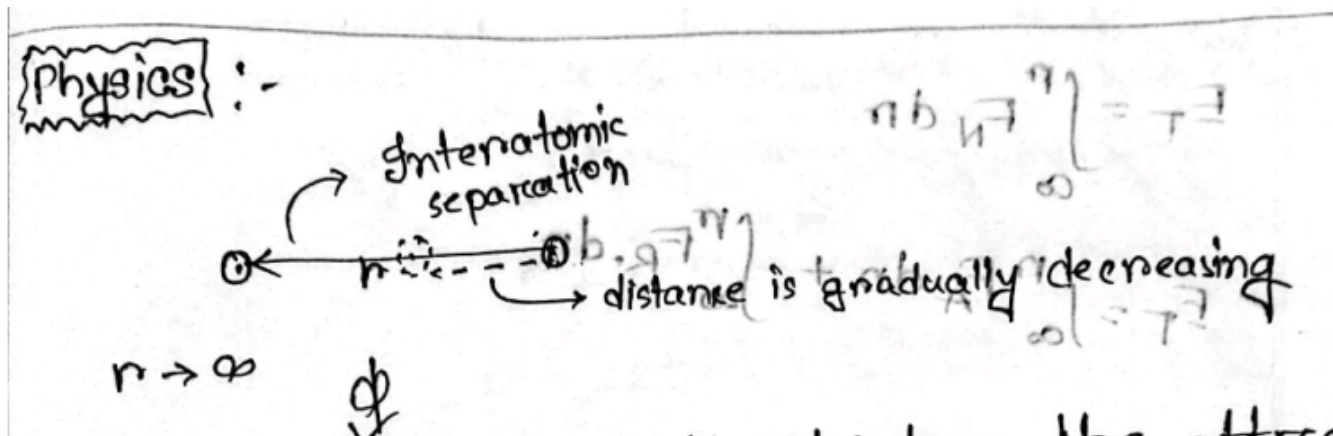 Physics :-
Interatomic
separation
r
distance is gradually decreasing
r → ∞